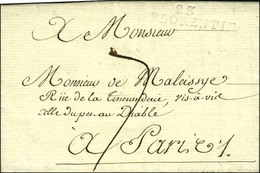 87
FLORENTIN
A Monsieur
Monsieur de Maleissye
Rüe de la Tineranderie, vis-à-vis
celle du pet au Diable
A Paris